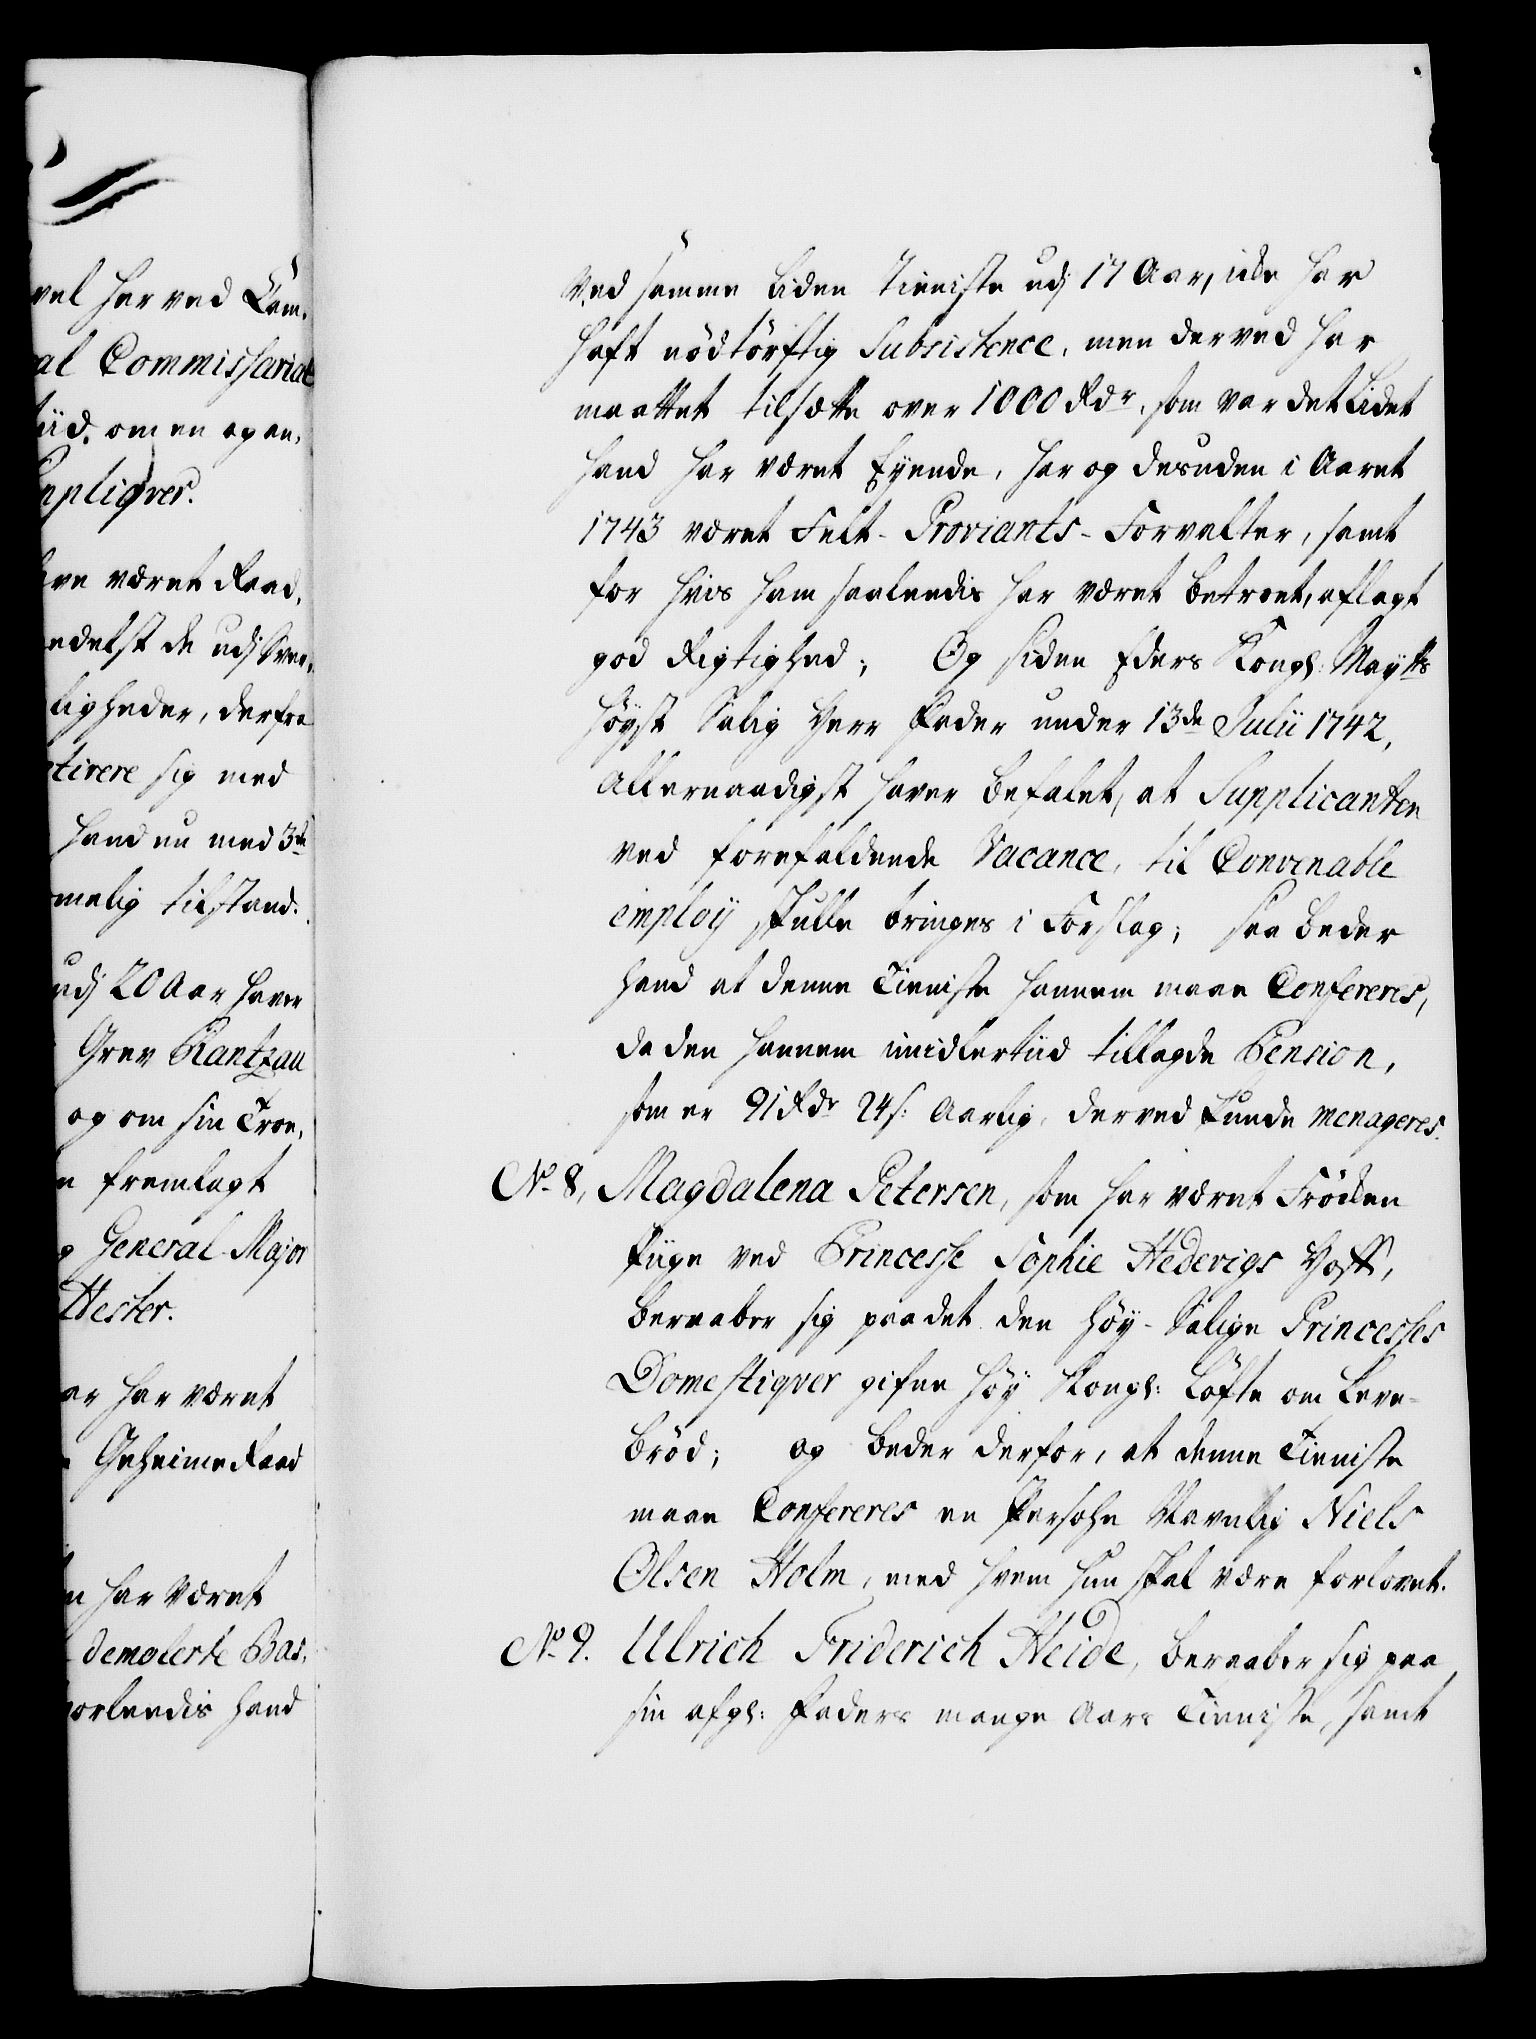 vel har ved Cam-
al Commissariat
tiid. om en og an-
upliqver.
ve været Raad,
edelst de udj Sven-
ligheder, derfra
tirere sig med
hand nu med 3de
melig tilstand.
udj 20 Aar haver
Grev Rantzau
og om sin Troe,
n fremlagt
General-Major
Hester.
ar har været
Geheime Raad
n har været
demolerte Bas-
orleedis hand
ved samme liden Tieniste udj 17 Aar, icke har
haft nödtörftig Subsistence, men derved har
maattet tilsætte over 1000 Rdr, som var det Lidet
hand har været Eyende, har og desuden i Aaret
1743 været Felt-Proviants-Forvalter, samt
for hvis ham saaleedis har været betroet, aflagt
god Rigtighed; Og siden Eders Kongl: Maytts
höyst Salig Herr Fader under 13de Julii 1742,
Allernaadigst haver befalet, at Supplicanten
ved forefaldende Vacance, til Convenable
employ skulle bringes i Forslag; saa beder
hand at denne Tieniste hannem maae Confereres,
da den hannem imidlertiid tillagde Pension,
som er 91 Rdr 24 s: Aarlig, derved kunde menageres.
No 8, Magdalena Petersen, som har været Fröcken
Piige ved Princesse Sophie Hedevigs Hoff,
beraaber sig paa det den Höy-Salige Princesses
Domestiqver gifne Höy Kongl: Löfte om Leve-
bröd; og beder derfor, at denne Tieniste
maae Confereres en Persohn Navnlig Niels
Olsen Holm, med hvem hun skal være forlovet.
No 9. Ulrich Friderich Heide, beraaber sig paa
sin afgl: Faders mange Aars Tieniste, samt